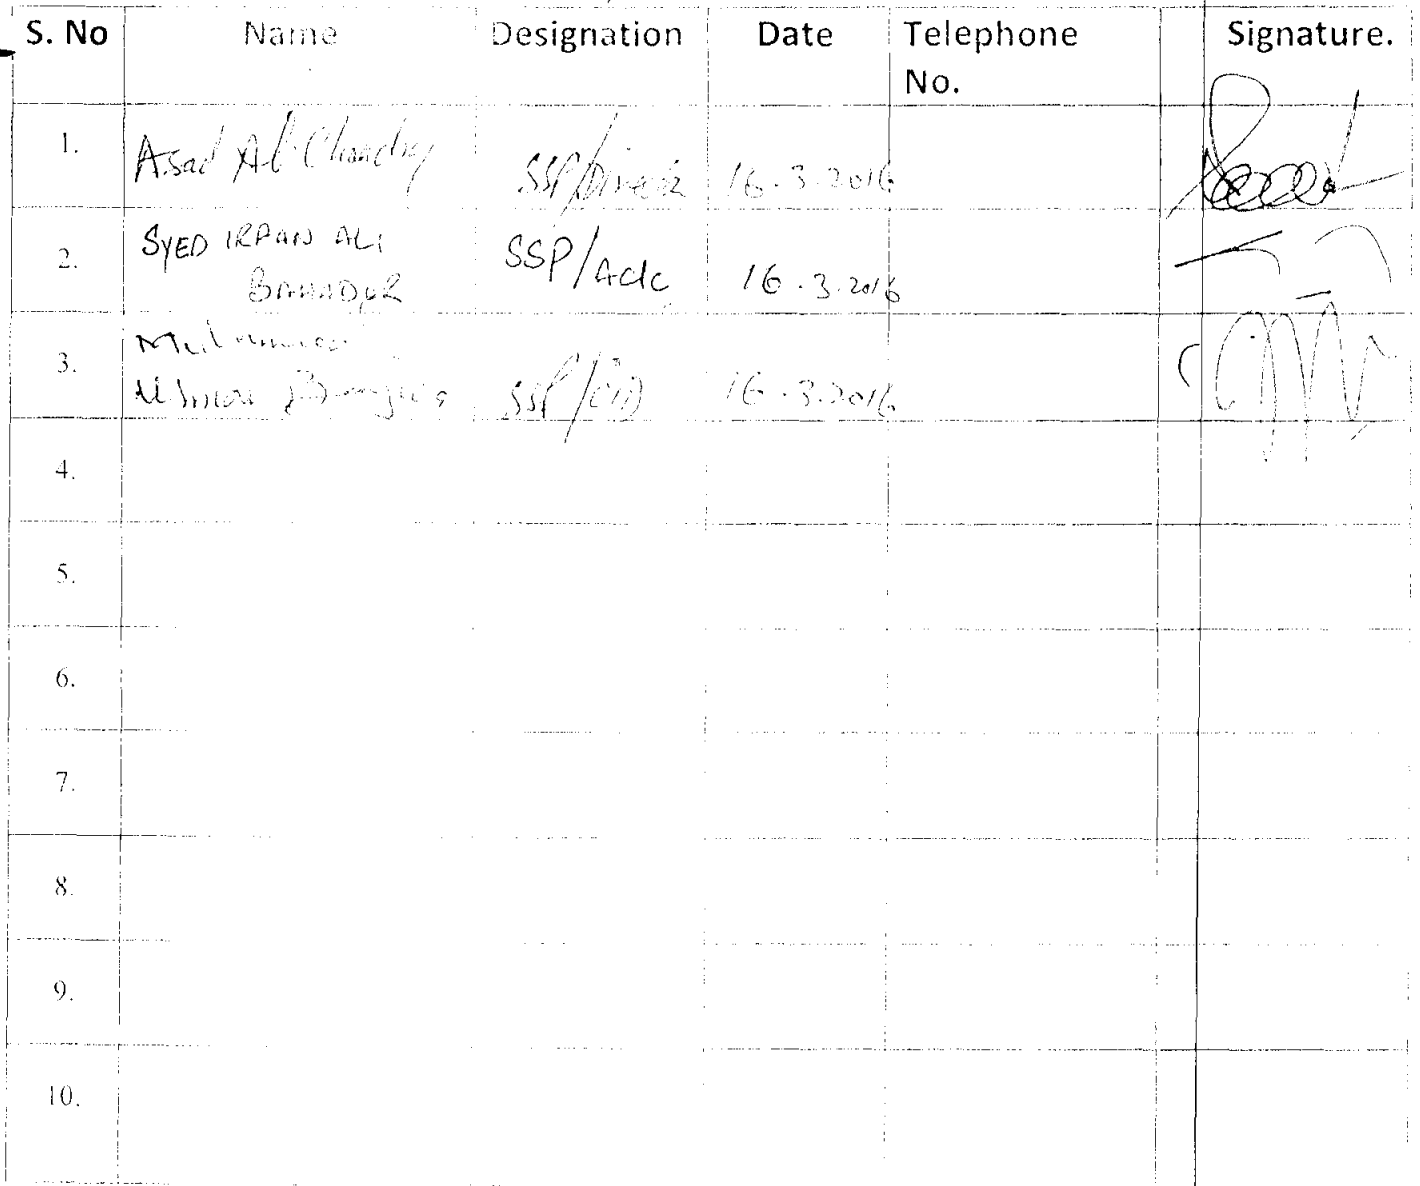 S. No Name Designation Date Telephone No. Signature.
1. Asad Al Chaudry SSP/Director 16.3.2016
2. SYED IRFAN ALI BAHADUR SSP/ 16.3.2016
3. SSP/CTD 16.3.2016
4.
5.
6.
7.
8.
9.
10.